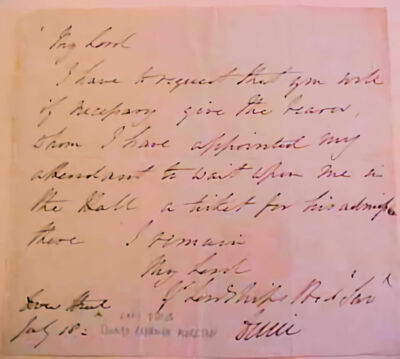 My Lord
I have to request that you will
if necessary give the bearer,
whom I have appointed my
attendant to wait upon me in
the Hall a ticket for his admission
there I remain
My Lord
Yr Lordships Obed Sert
Dover Street
July 18